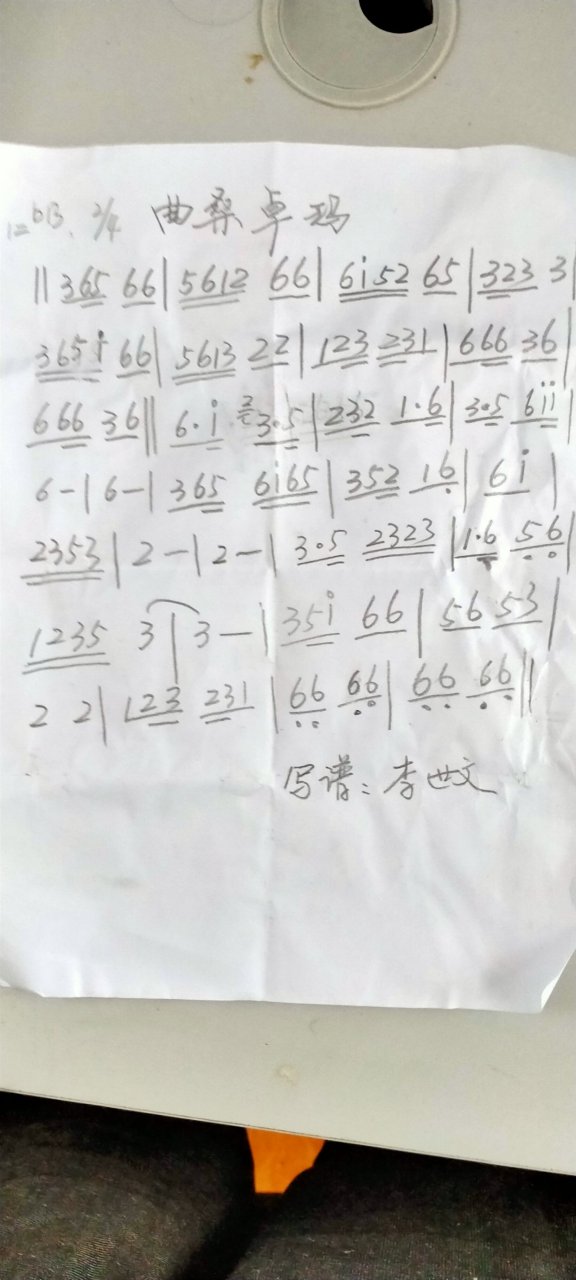 1=bB. 2/4 曲桑卓玛
‖ 365 66 | 5612 66 | 6i52 65 | 323 3 |
365i 66 | 5613 22 | 123 231 | 666 36 |
666 36 ‖ 6·i 3·5 | 232 1·6 | 3·5 6ii |
6 - | 6 - | 365 6i65 | 352 16 | 6i |
2353 | 2 - | 2 - | 3·5 2323 | 1·6 56 |
1235 3 | 3 — | 35i 66 | 56 53 |
2 2 | 123 231 | 66 66 | 66 66 ‖
写谱：李世文